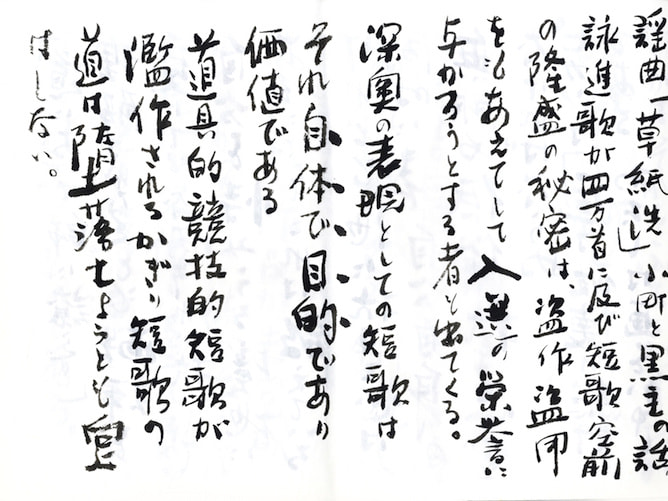 謡曲「草紙洗」小町と黒主の話
詠進歌が四万首に及び短歌空前
の隆盛の秘密は、盗作盗用
をもあえてして入選の栄誉に
与かろうとする者も出てくる。
深奥の表現としての短歌は
それ自体で目的であり
価値である
道具的競技的短歌が
濫作されるかぎり短歌の
道は堕落せようとも向上
はしない。